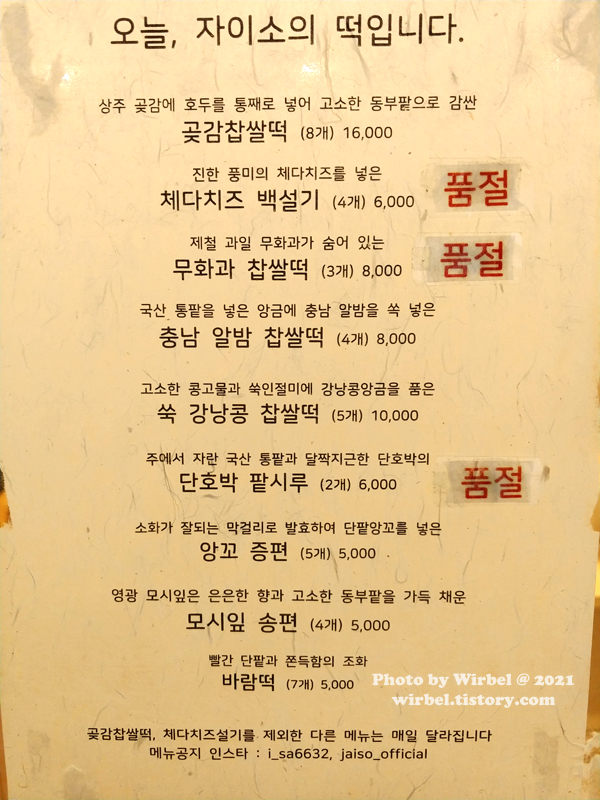 오늘, 자이소의 떡입니다.
상주 곶감에 호두를 통째로 넣어 고소한 동부팥으로 감싼
곶감찹쌀떡 (8개) 16,000
진한 풍미의 체다치즈를 넣은
체다치즈 백설기 (4개) 6,000 품절
제철 과일 무화과가 숨어 있는
무화과 찹쌀떡 (3개) 8,000 품절
국산 통팥을 넣은 앙금에 충남 알밤을 쏙 넣은
충남 알밤 찹쌀떡 (4개) 8,000
고소한 콩고물과 쑥인절미에 강낭콩앙금을 품은
쑥 강낭콩 찹쌀떡 (5개) 10,000
주에서 자란 국산 통팥과 달짝지근한 단호박의
단호박 팥시루 (2개) 6,000 품절
소화가 잘되는 막걸리로 발효하여 단팥앙꼬를 넣은
앙꼬 증편 (5개) 5,000
영광 모시잎은 은은한 향과 고소한 동부팥을 가득 채운
모시잎 송편 (4개) 5,000
빨간 단팥과 쫀득함의 조화
바람떡 (7개) 5,000
Photo by Wirbel @ 2021
wirbel.tistory.com
곶감찹쌀떡, 체다치즈설기를 제외한 다른 메뉴는 매일 달라집니다
메뉴공지 인스타 : i_sa6632, jaiso_official